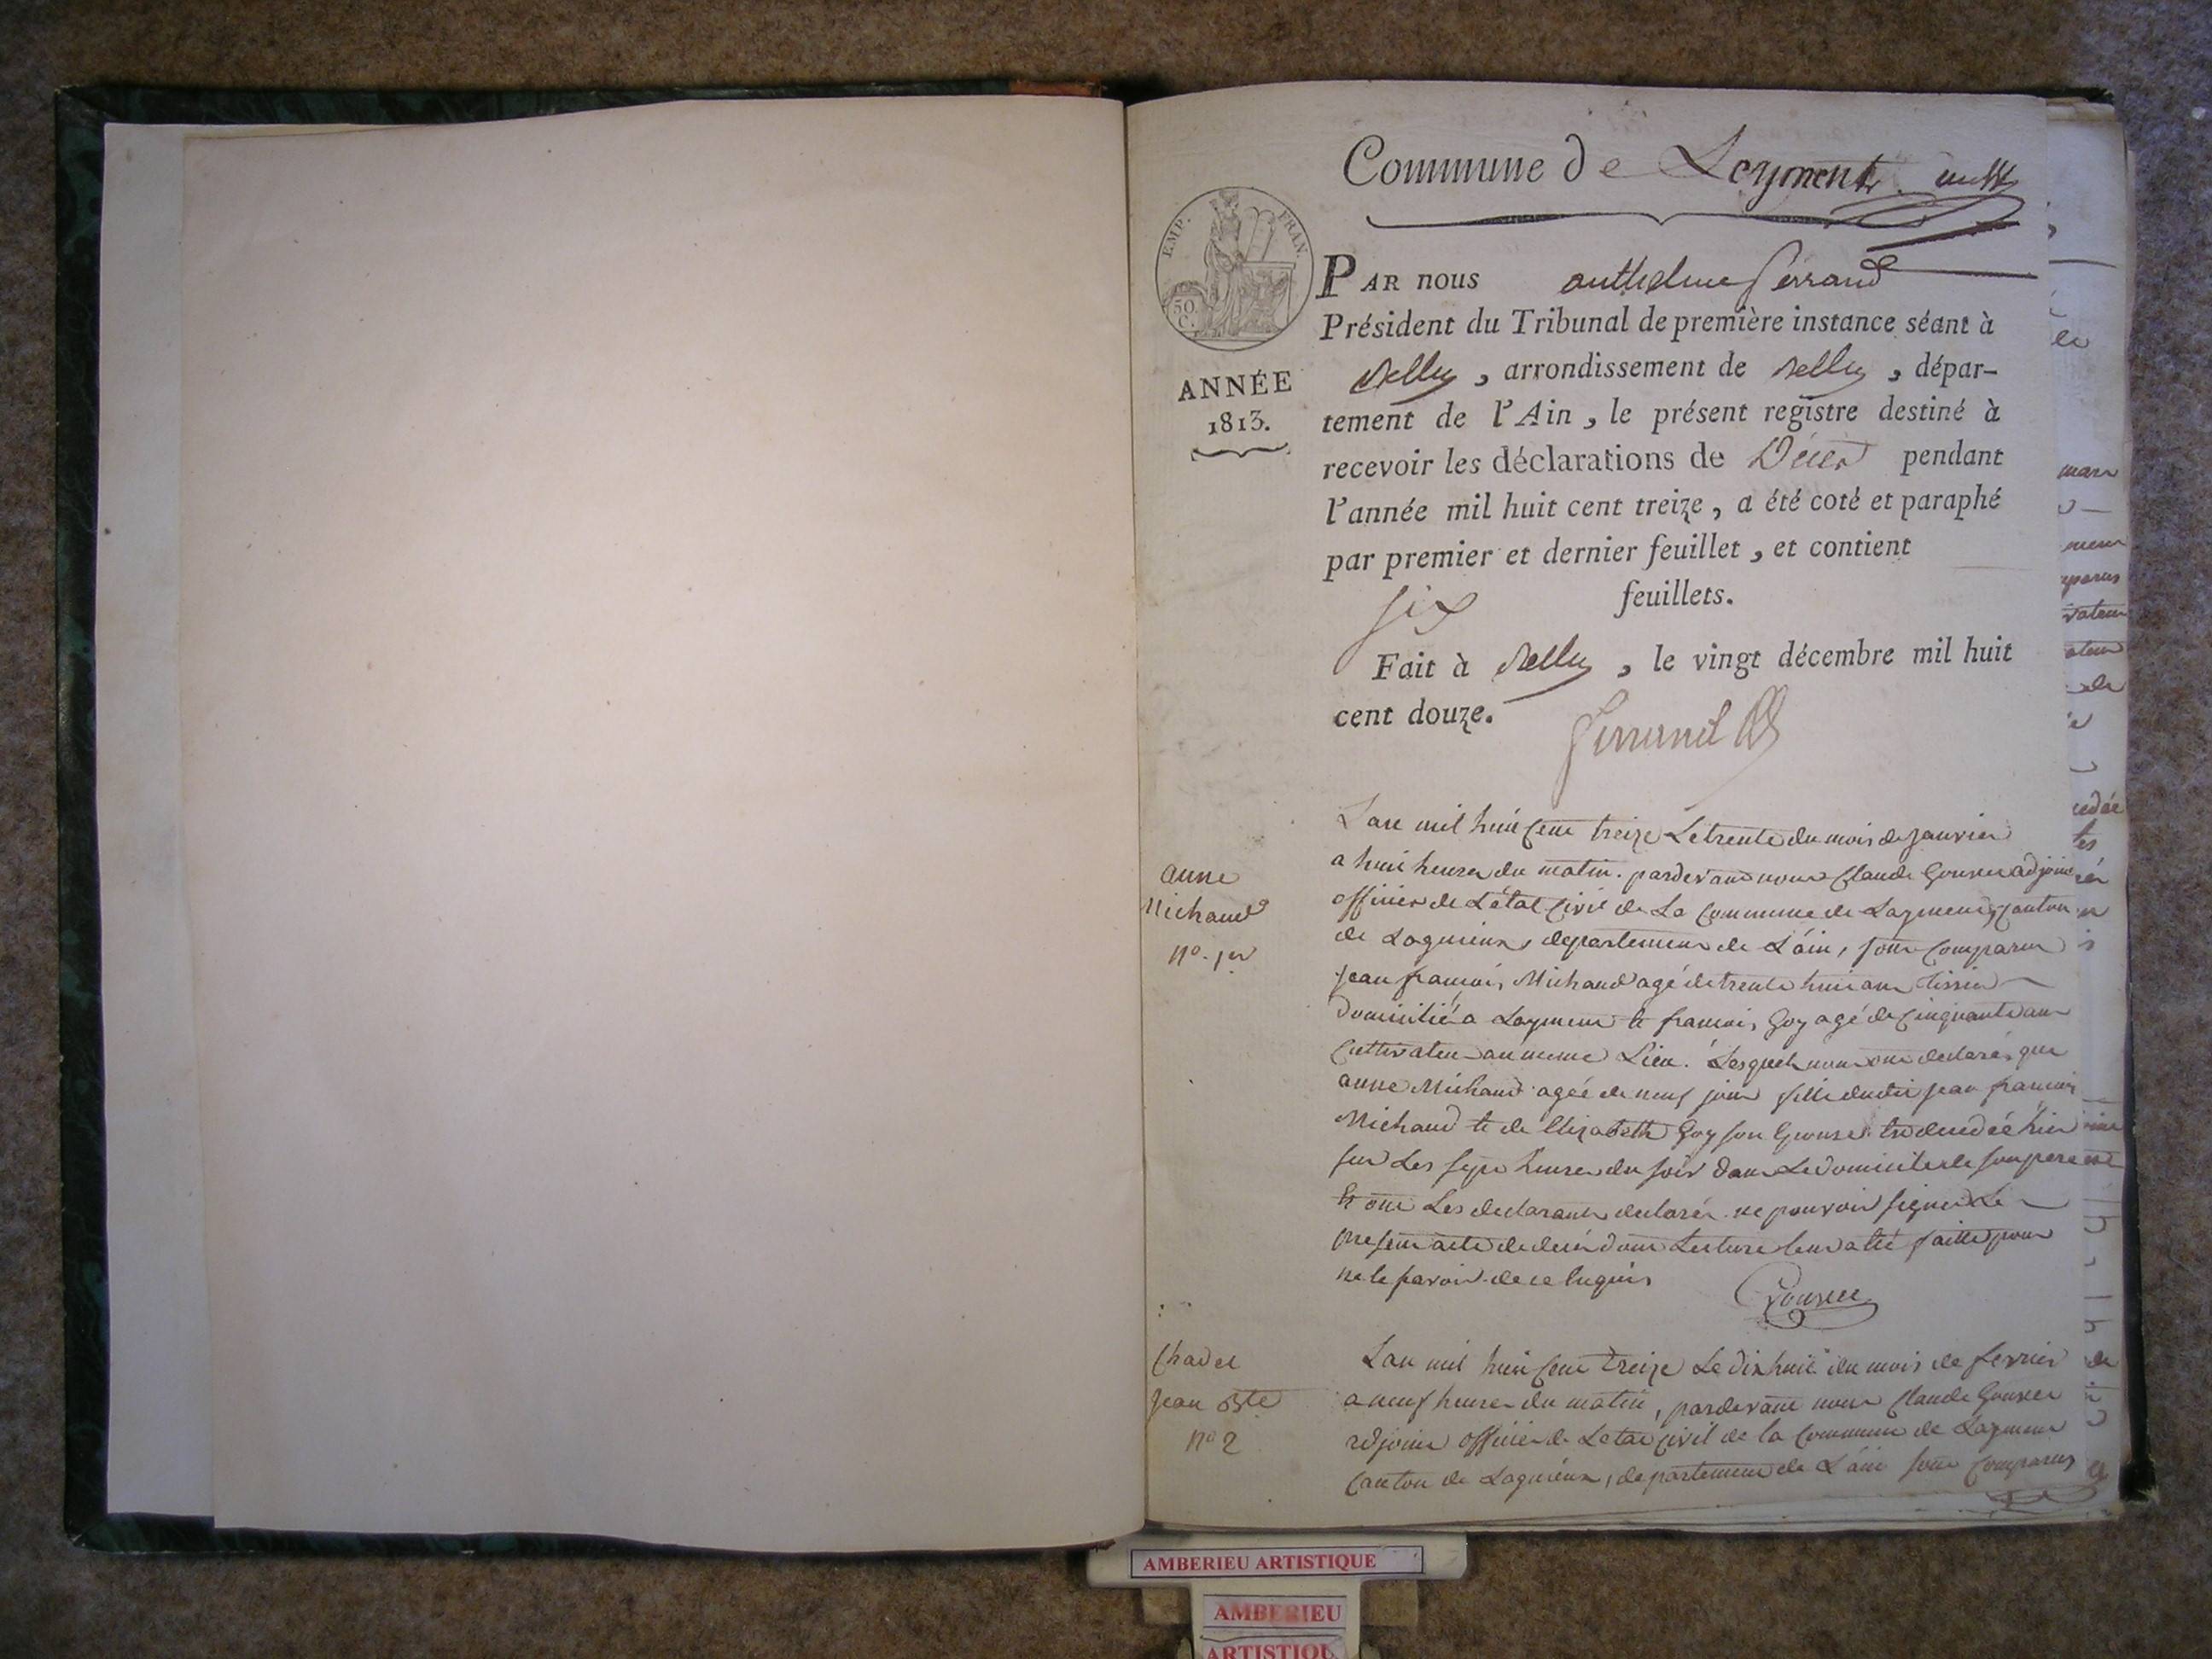 Commune de Leyment
EMP. FRAN.
50 C.
ANNÉE
1813.
PAR nous anthelme ferrand
Président du Tribunal de première instance séant à
Belley, arrondissement de Belley, dépar-
tement de l'Ain, le présent registre destiné à
recevoir les déclarations de Décès pendant
l'année mil huit cent treize, a été coté et paraphé
par premier et dernier feuillet, et contient
six feuillets.
Fait à Belley, le vingt décembre mil huit
cent douze.
ferrand
anne
Michaud
no. 1er
Lan mil huit cent treize Le trente du mois de janvier
a huit heures du matin. pardevant nous Claude Gousser adjoint
officier de Létat civil de La Commune de Layment, canton
de Lagnieux, departement de L'ain, sont comparus
jean francois Michaud agé de trente huit ans tissier
domicilié a Layment et francois Goy agé de cinquante ans
cultivateur au meme Lieu. Lesquels nous ont declarés que
anne Michaud agée de neuf jours fille dudit jean francois
Michaud et de Elizabeth Goy son Epouse est decedée hier
sur Les sept heures du soir dans Le domicile de son pere
Et ont Les declarants declarés ne pouvoir signer Le
present acte de decès dont Lecture leur a été faitte pour
ne le savoir de ce Enquis
Gousser
Chadel
Jean Bte
no 2
Lan mil huit cent treize Le dix huit du mois de fevrier
a neuf heures du matin, pardevant nous Claude Gousser
adjoint officier de Letat civil de la Commune de Layment
Canton de Lagnieux, departement de L'ain sont comparus
AMBERIEU ARTISTIQUE
AMBERIEU
ARTISTIQU